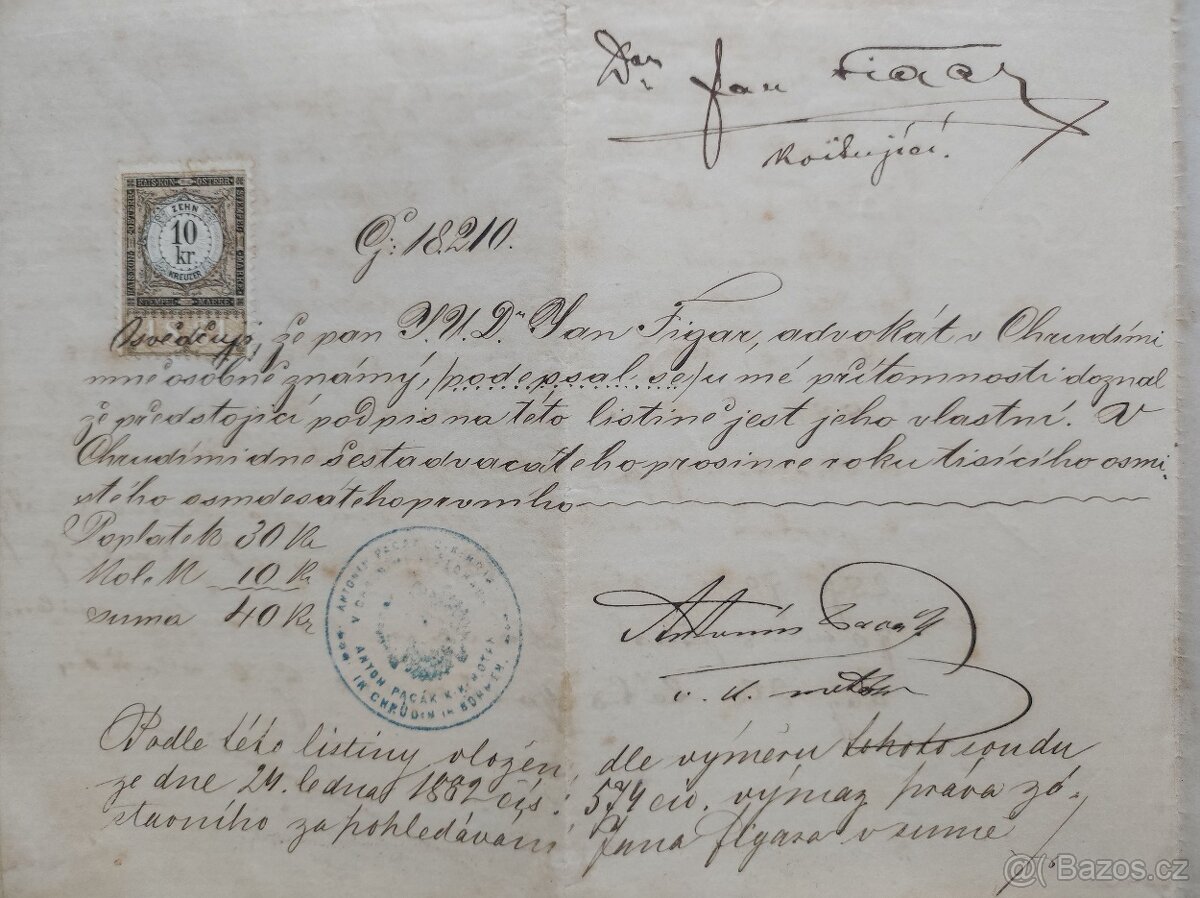 Dr. Jan Figar
kvitující.
KAIS. KÖN. ÖSTERR.
ZEHN
10
kr.
KREUZER
STEMPEL MARKE
Č: 18210.
Osvědčuji, že pan J.U.Dr Jan Figar, advokát v Chrudimi
mně osobně známý, /podepsal se/ u mé přítomnosti doznal
že předstojící podpis na této listině jest jeho vlastní. V
Chrudimi dne šestadvacátého prosince roku tisícího osmi
stého osmdesátého prvního
Poplatek 30 Kr
Kolek 10 Kr
suma 40 Kr
ANTONÍN PACÁK C.K. NOTÁŘ
V CHRUDIMI
ANTON PACÁK K.K. NOTAR
IN CHRUDIM IN BÖHMEN
Antonín Pacák
c. k. notář
Podle této listiny vložen, dle výměru tohoto soudu
ze dne 24. ledna 1882 čís: 574 civ. výmaz práva zá-
stavního za pohledávání Jana Figara v sumě
Bazos.cz